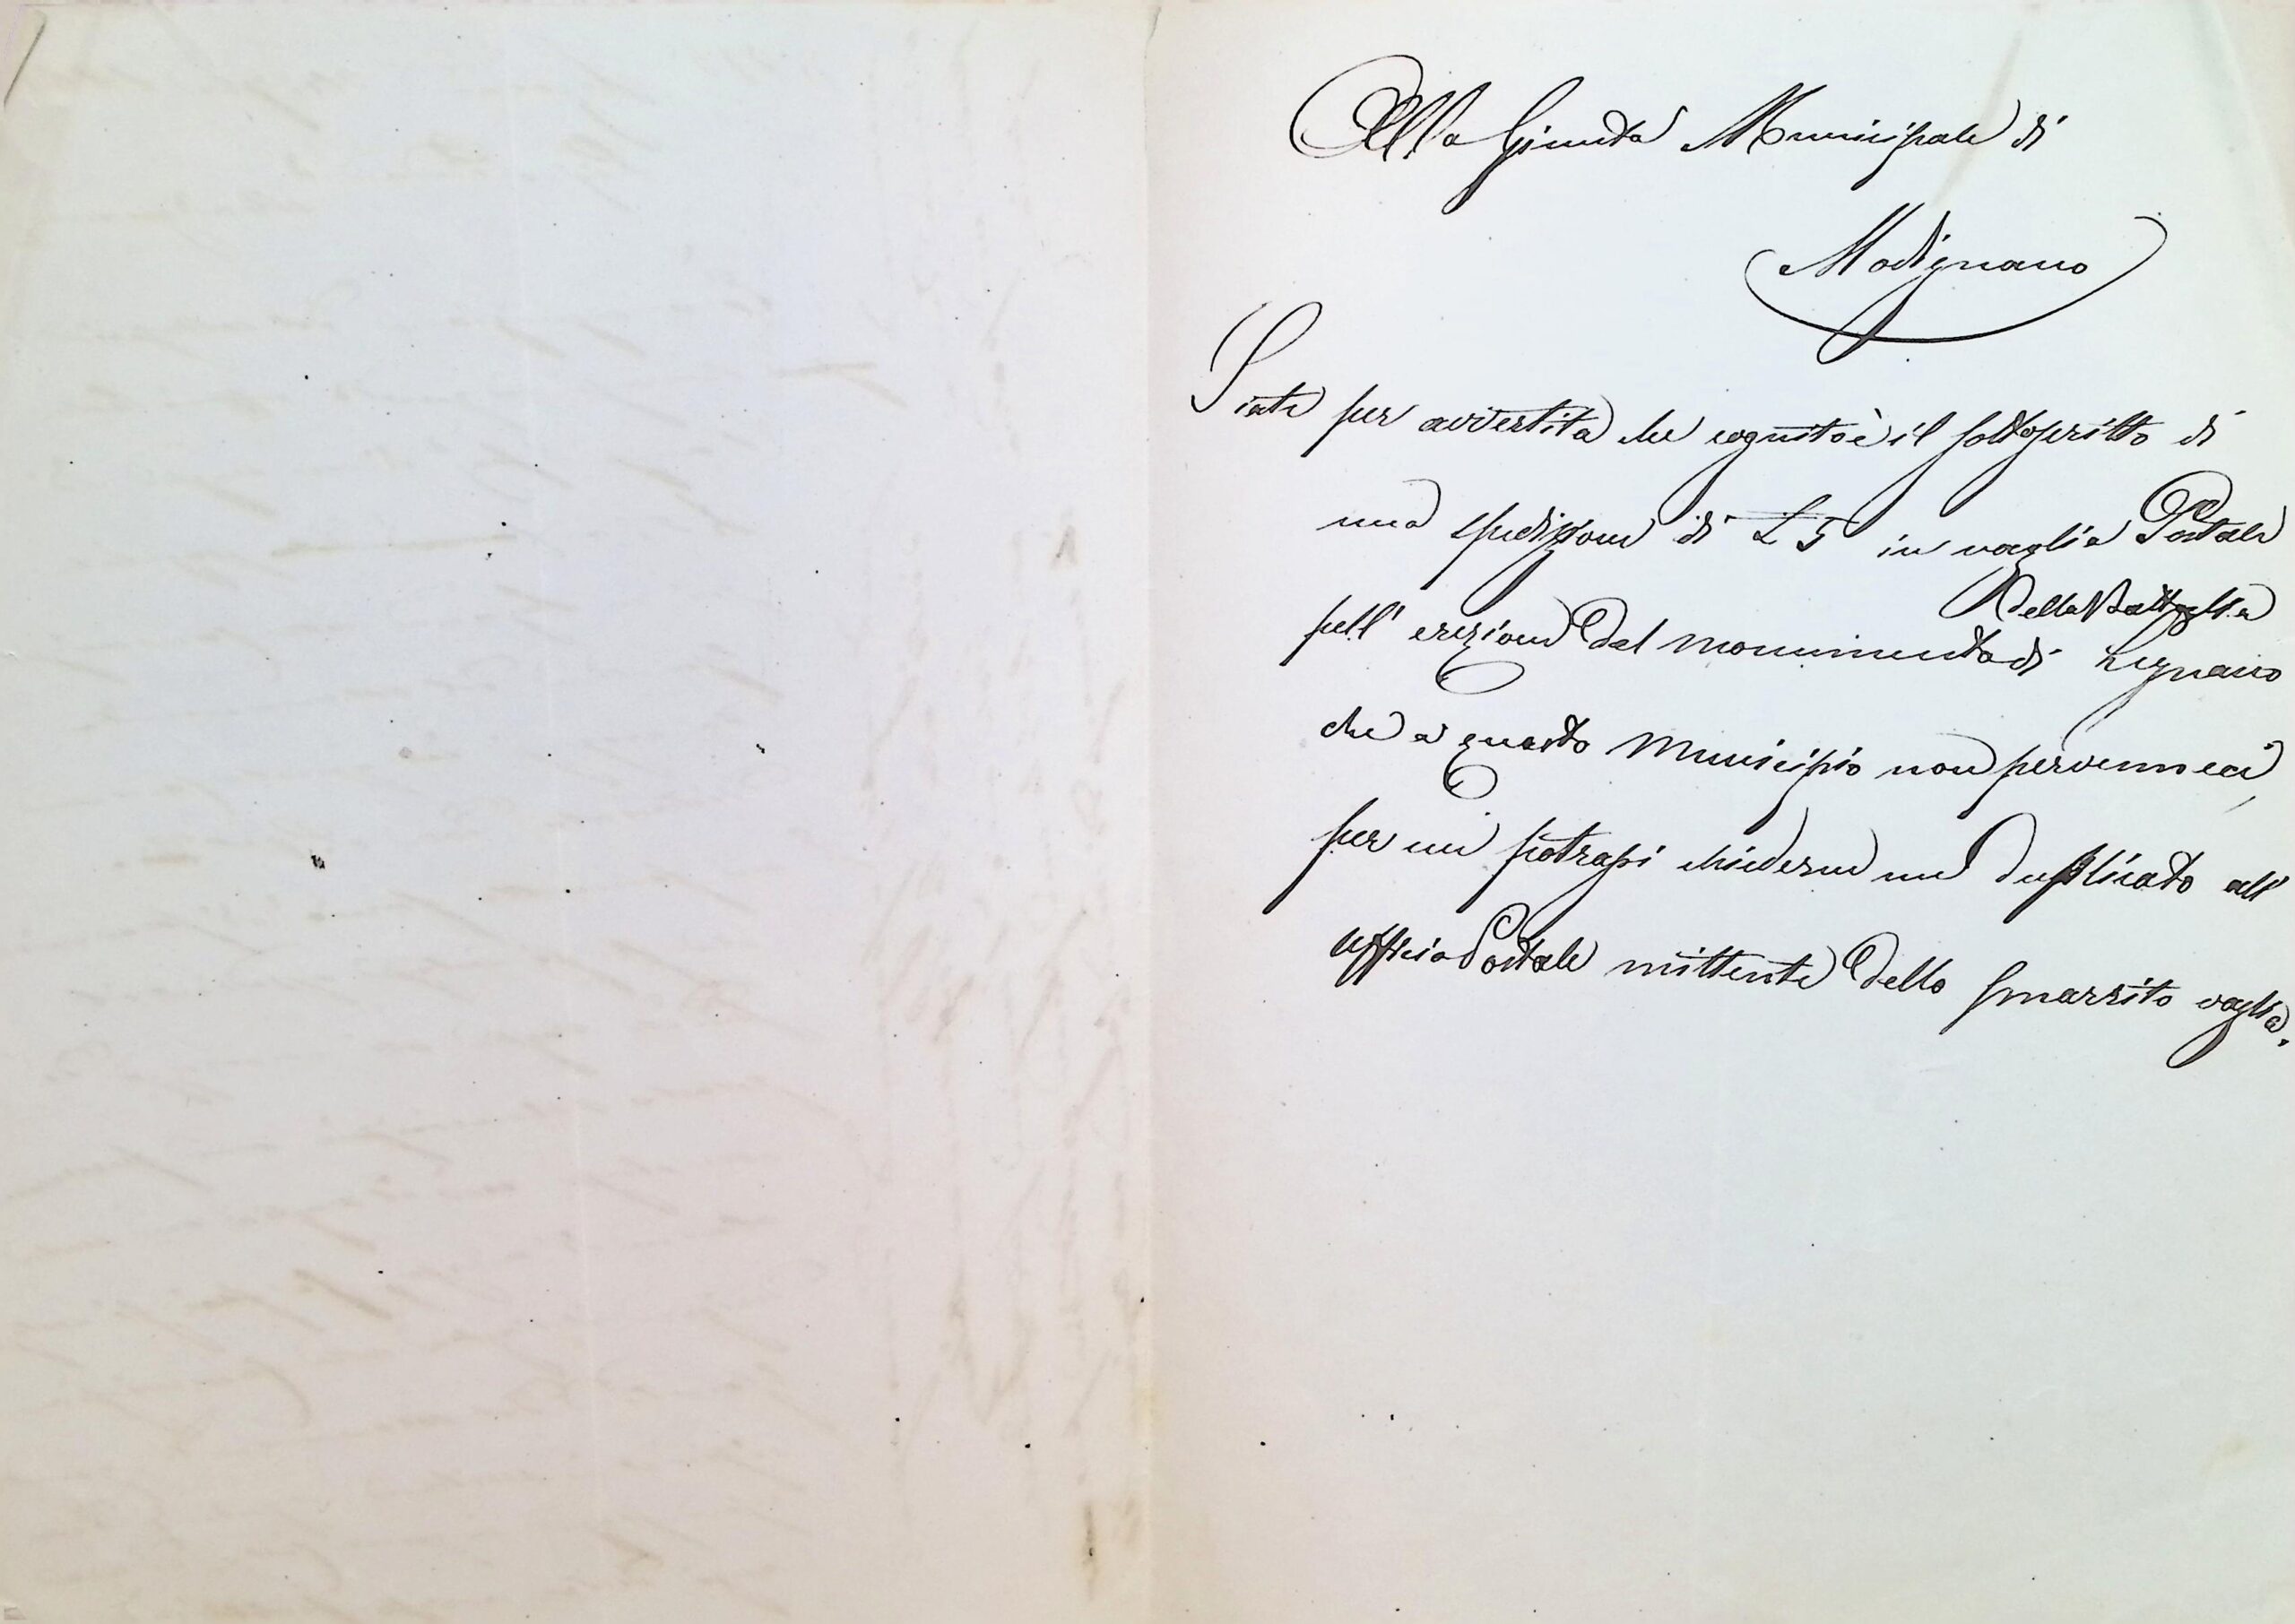 Alla Giunta Municipale di
Modignano
Siate per avvertita che cognito è il sottoscritto di
una spedizione di L 5 in vaglia Postale
della Battaglia
pell' erezione del monumento di Legnano
che a questo Municipio non pervenne
per cui potrassi chiederne un duplicato all'
ufficio Postale mittente dello smarrito vaglia.